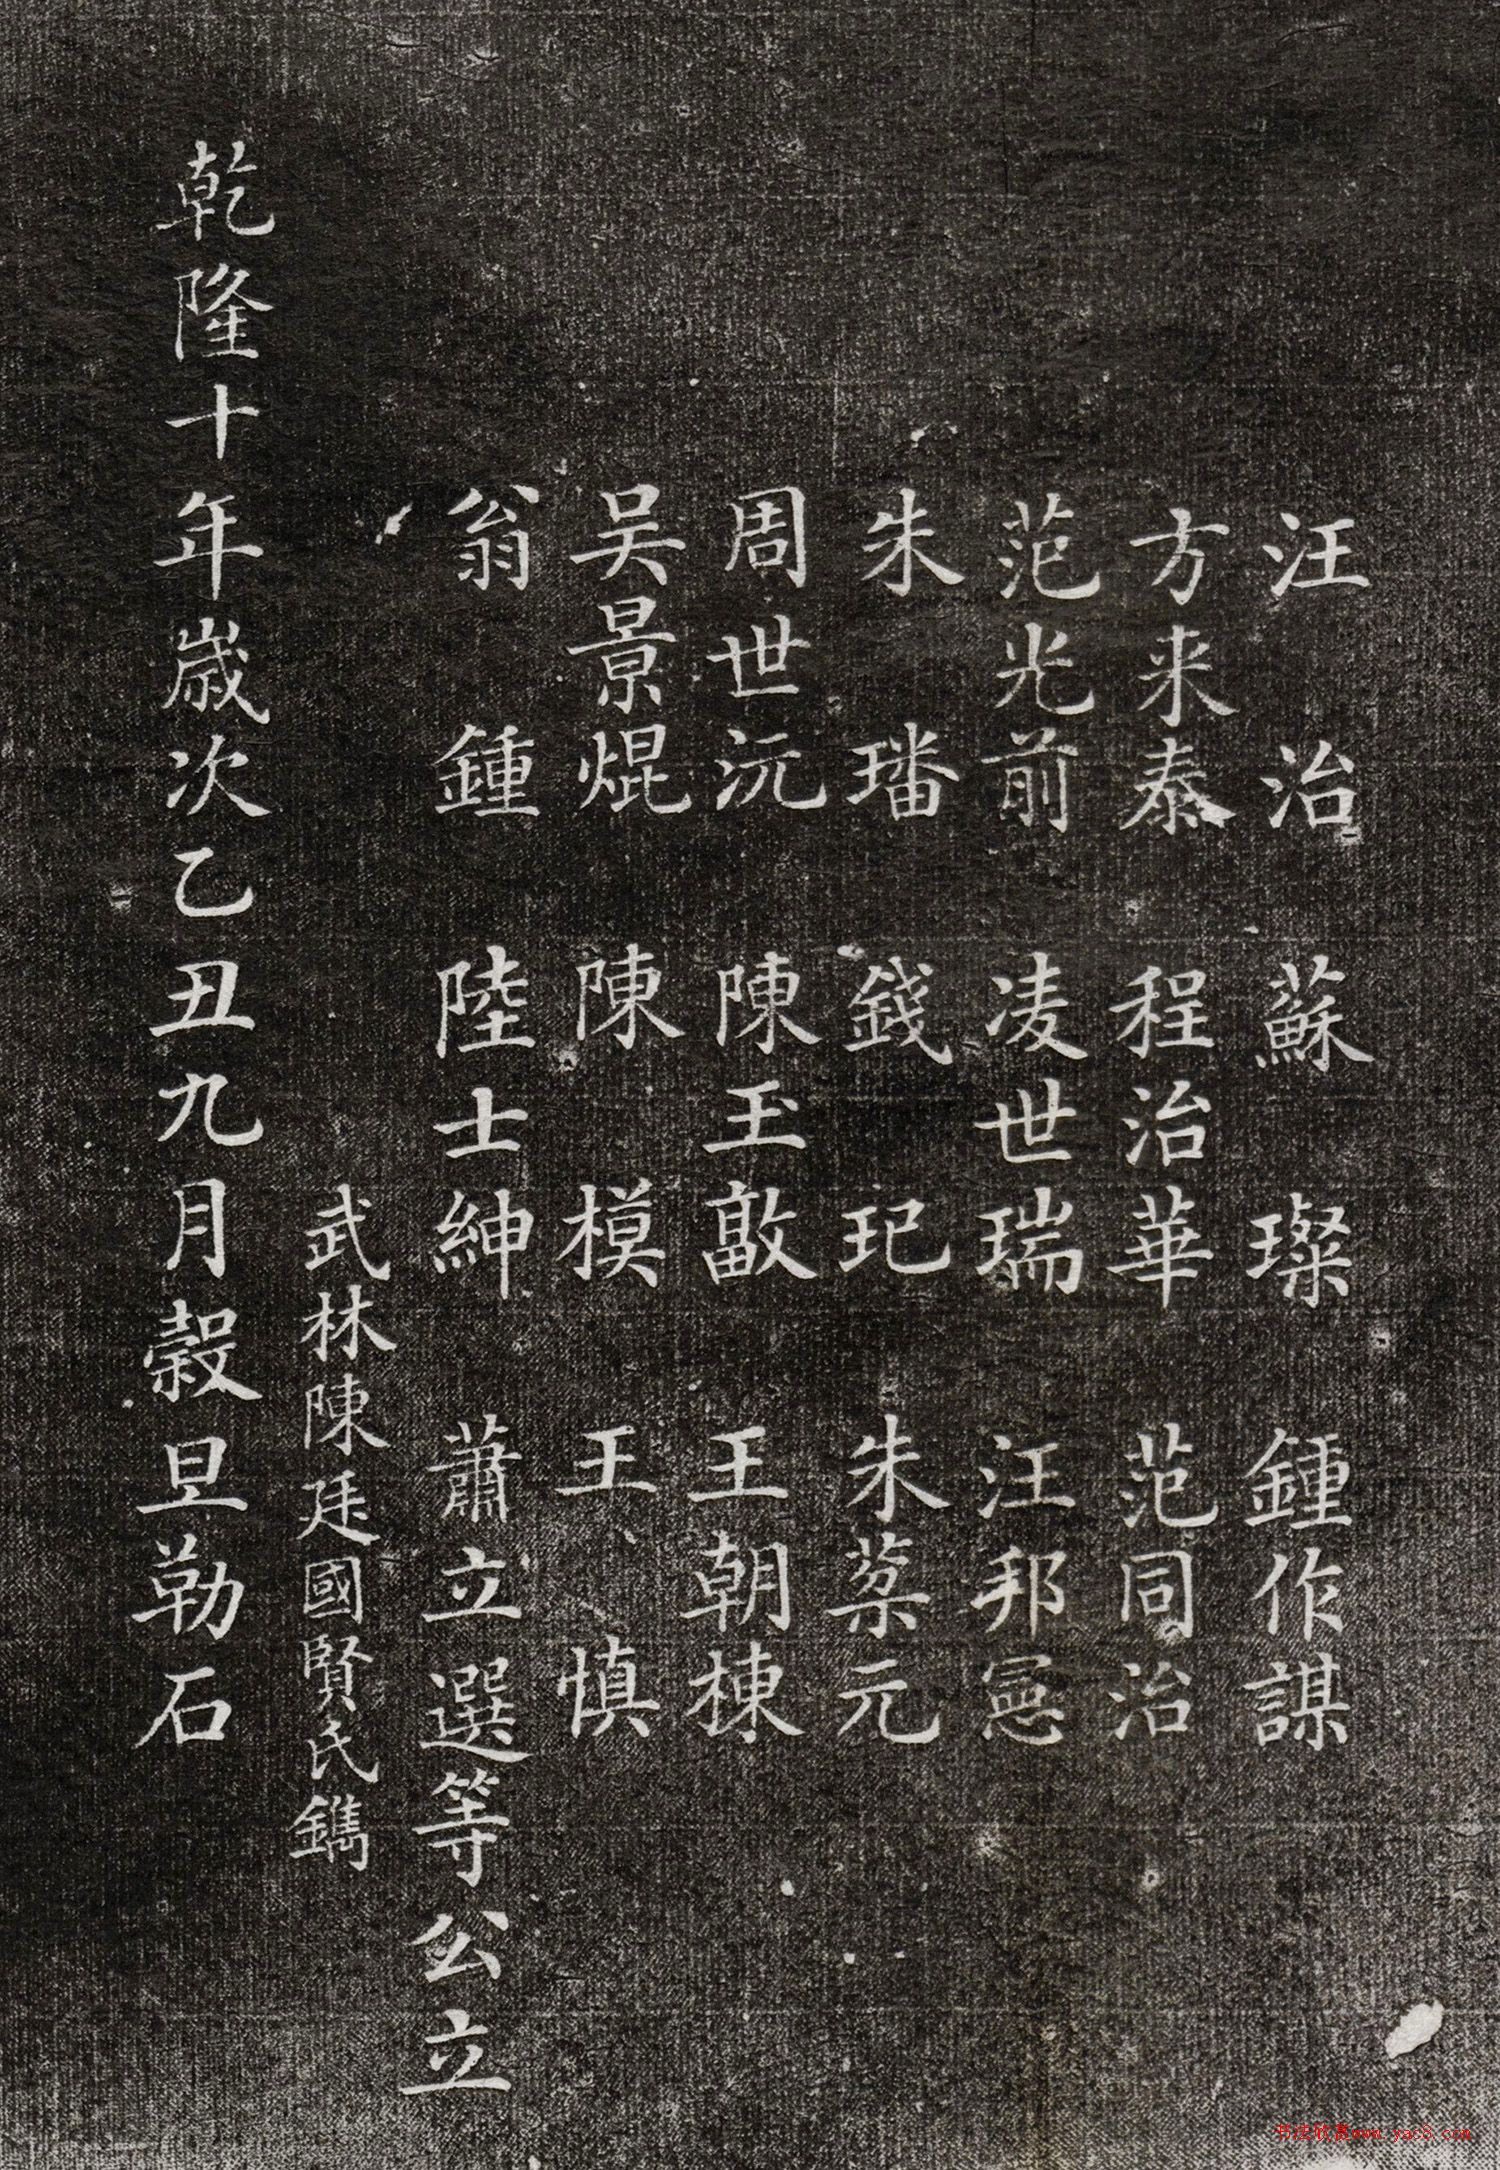 汪　治　蘇　璨　鍾作謀
方来泰　程治華　范同治
范光前　凌世瑞　汪邦憲
朱　璠　錢　玘　朱蔡元
周世沅　陳王敵　王朝棟
吴景焜　陳　模　王　慎
翁　鍾　陸士紳　蕭立選等公立
武林陳廷國賢氏鐫
乾隆十年歲次乙丑九月穀旦勒石
书法欣赏www.yac8.com